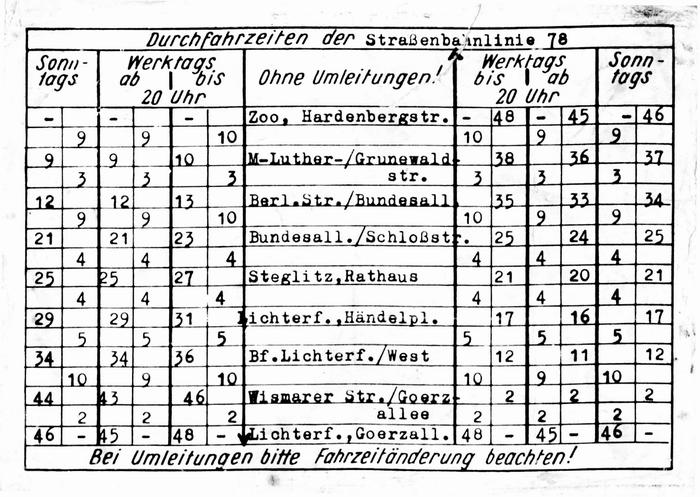 Durchfahrzeiten der Straßenbahnlinie 78
Sonn- Werktags Ohne Umleitungen! Werktags Sonn-
tags ab bis bis ab tags
20 Uhr 20 Uhr
- - - Zoo, Hardenbergstr. - 48 - 45 - 46
9 9 10 10 9 9
9 9 10 M-Luther-/Grunewald- 38 36 37
3 3 3 str. 3 3 3
12 12 13 Berl.Str./Bundesall. 35 33 34
9 9 10 10 9 9
21 21 23 Bundesall./Schloßstr. 25 24 25
4 4 4 4 4 4
25 25 27 Steglitz,Rathaus 21 20 21
4 4 4 4 4 4
29 29 31 Lichterf.,Händelpl. 17 16 17
5 5 5 5 5 5
34 34 36 Bf.Lichterf./West 12 11 12
10 9 10 10 9 10
44 43 46 Wismarer Str./Goerz- 2 2 2
2 2 2 allee 2 2 2
46 - 45 - 48 - Lichterf.,Goerzall. 48 - 45 - 46 -
Bei Umleitungen bitte Fahrzeitänderung beachten!